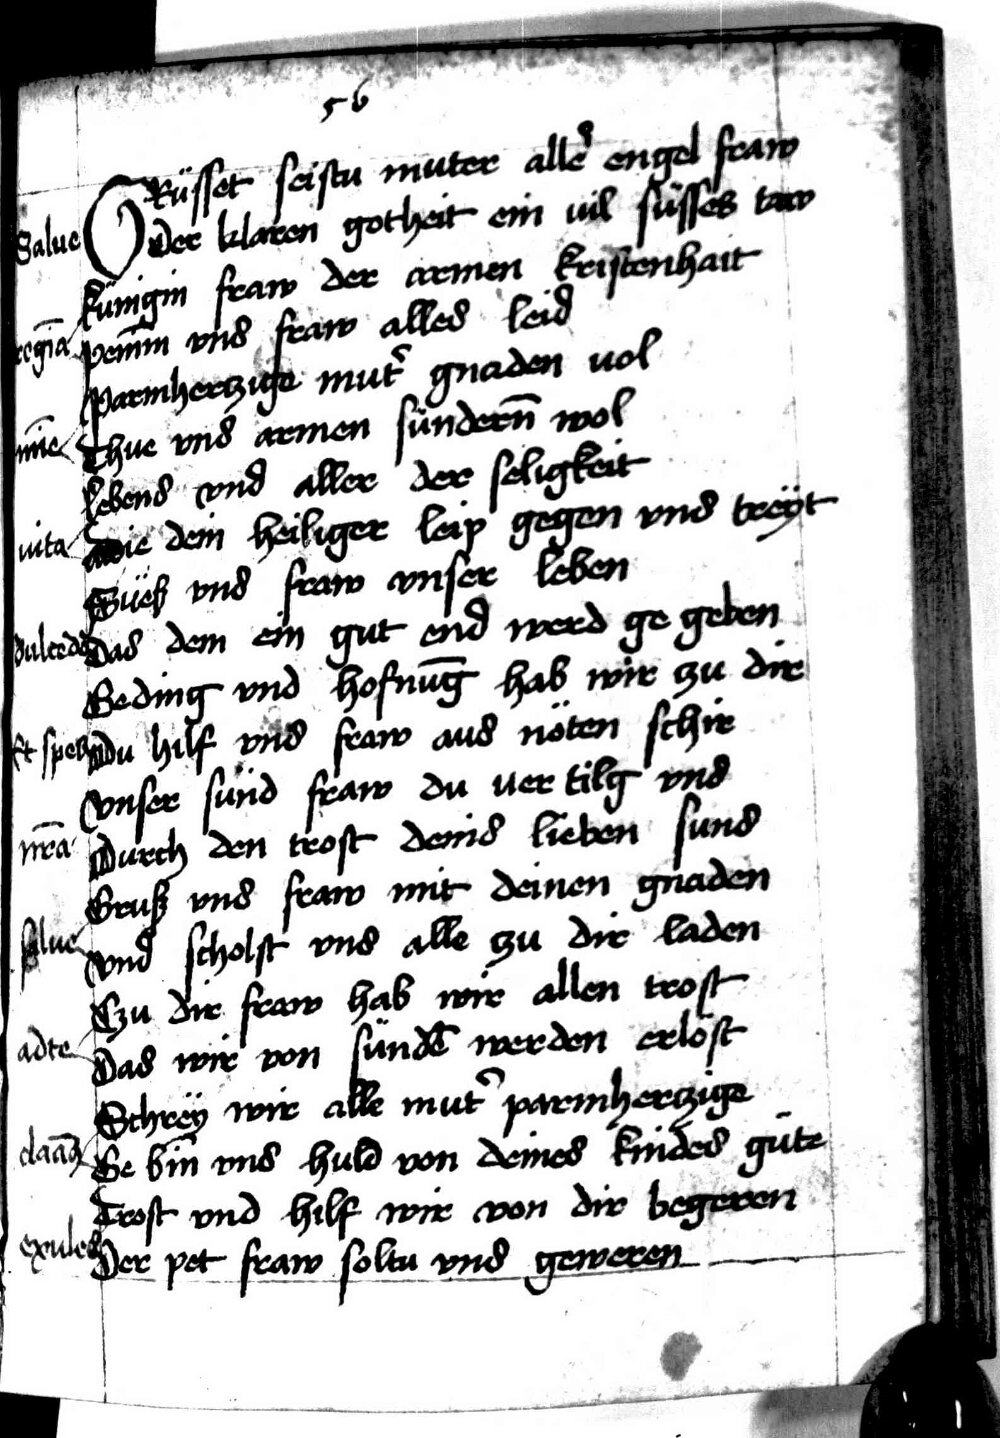 56
GRüsset seistu muter alleᷣ engel fraw
Salue
Der klaren gotheit ein uil süsses taw
Künigin fraw der armen kristenhait
regīa
Penīm vns fraw alles leid
Parmherczige mutᷣ gnaden uol
mīe
Thue vns armen sündern̄ wol
Lebens vnd aller der seligkeit
vita
Die dein heiliger leip gegen vns treÿt
Süeß vns fraw vnser leben
dulcedo
Das dem ein gut end werd ge geben
Geding vnd hofnūg hab wir zu dir
Et spes
Du hilf vns fraw aus nöten schir
Vnser sünd fraw du uer tilg vns
nr̄a
Durch den trost deins lieben suns
Gruß vns fraw mit deinen gnaden
salue
Vnd scholst vns alle zu dir laden
Czu dir fraw hab wir allen trost
adte
Das wir von sündē werden erlost
Schreÿ wir alle mutᷣ parmherczige
Ge bīn vns huld von deines kindes güte
Trost vnd hilf wir von dir begeren
exules
Der pet fraw soltu vns geweren